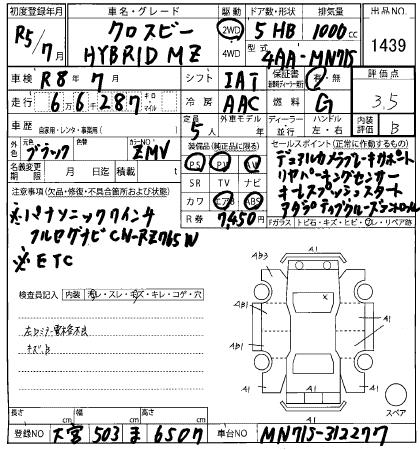 初度登録年月 車名・グレード 駆動 ドア数・形状 排気量 出品NO.
R5/7月 クロスビー 2WD 5 HB 1000cc
HYBRID MZ 4WD 型式 4AA-MN71S 1439
車検 R8年7月 シフト IAT 保証書 有・無 評価点
走行 66,287 キロ マイル 冷房 AAC 燃料 G 3.5
車歴 自家用・レンタ・事務所( ) 定員 5人 外車モデル 年 ディーラー 並行 ハンドル 左・右 内装評価 B
外色 元色 ブラック カラーNO ZMV 装備品(純正品に限る) セールスポイント(正常に動作するもの)
名義変更期限 月 日迄 積載 PS PW AW デュアルカメラブレーキサポート
SR TV ナビ リヤパーキングセンサー
注意事項(欠品・修復・不具合箇所および状態) カワ エアB ABS キーレスプッシュスタート
※パナソニック7インチ R券 7,450円 アダプティブクルーズコントロール
フルセグナビ CN-RZ765W Fガラス トビ石・キズ・ヒビ・ワレ・リペア跡
※ETC
A1
AB3 A1
検査員記入 内装 汚レ・スレ・キズ・キレ・コゲ・穴
AB1 X A1
左ミラー電格不良
キズ、B
A1 A1
長さ cm 幅 cm 高さ cm A1 スペア
登録NO 大宮 503 ま 6507 車台NO MN71S-312277